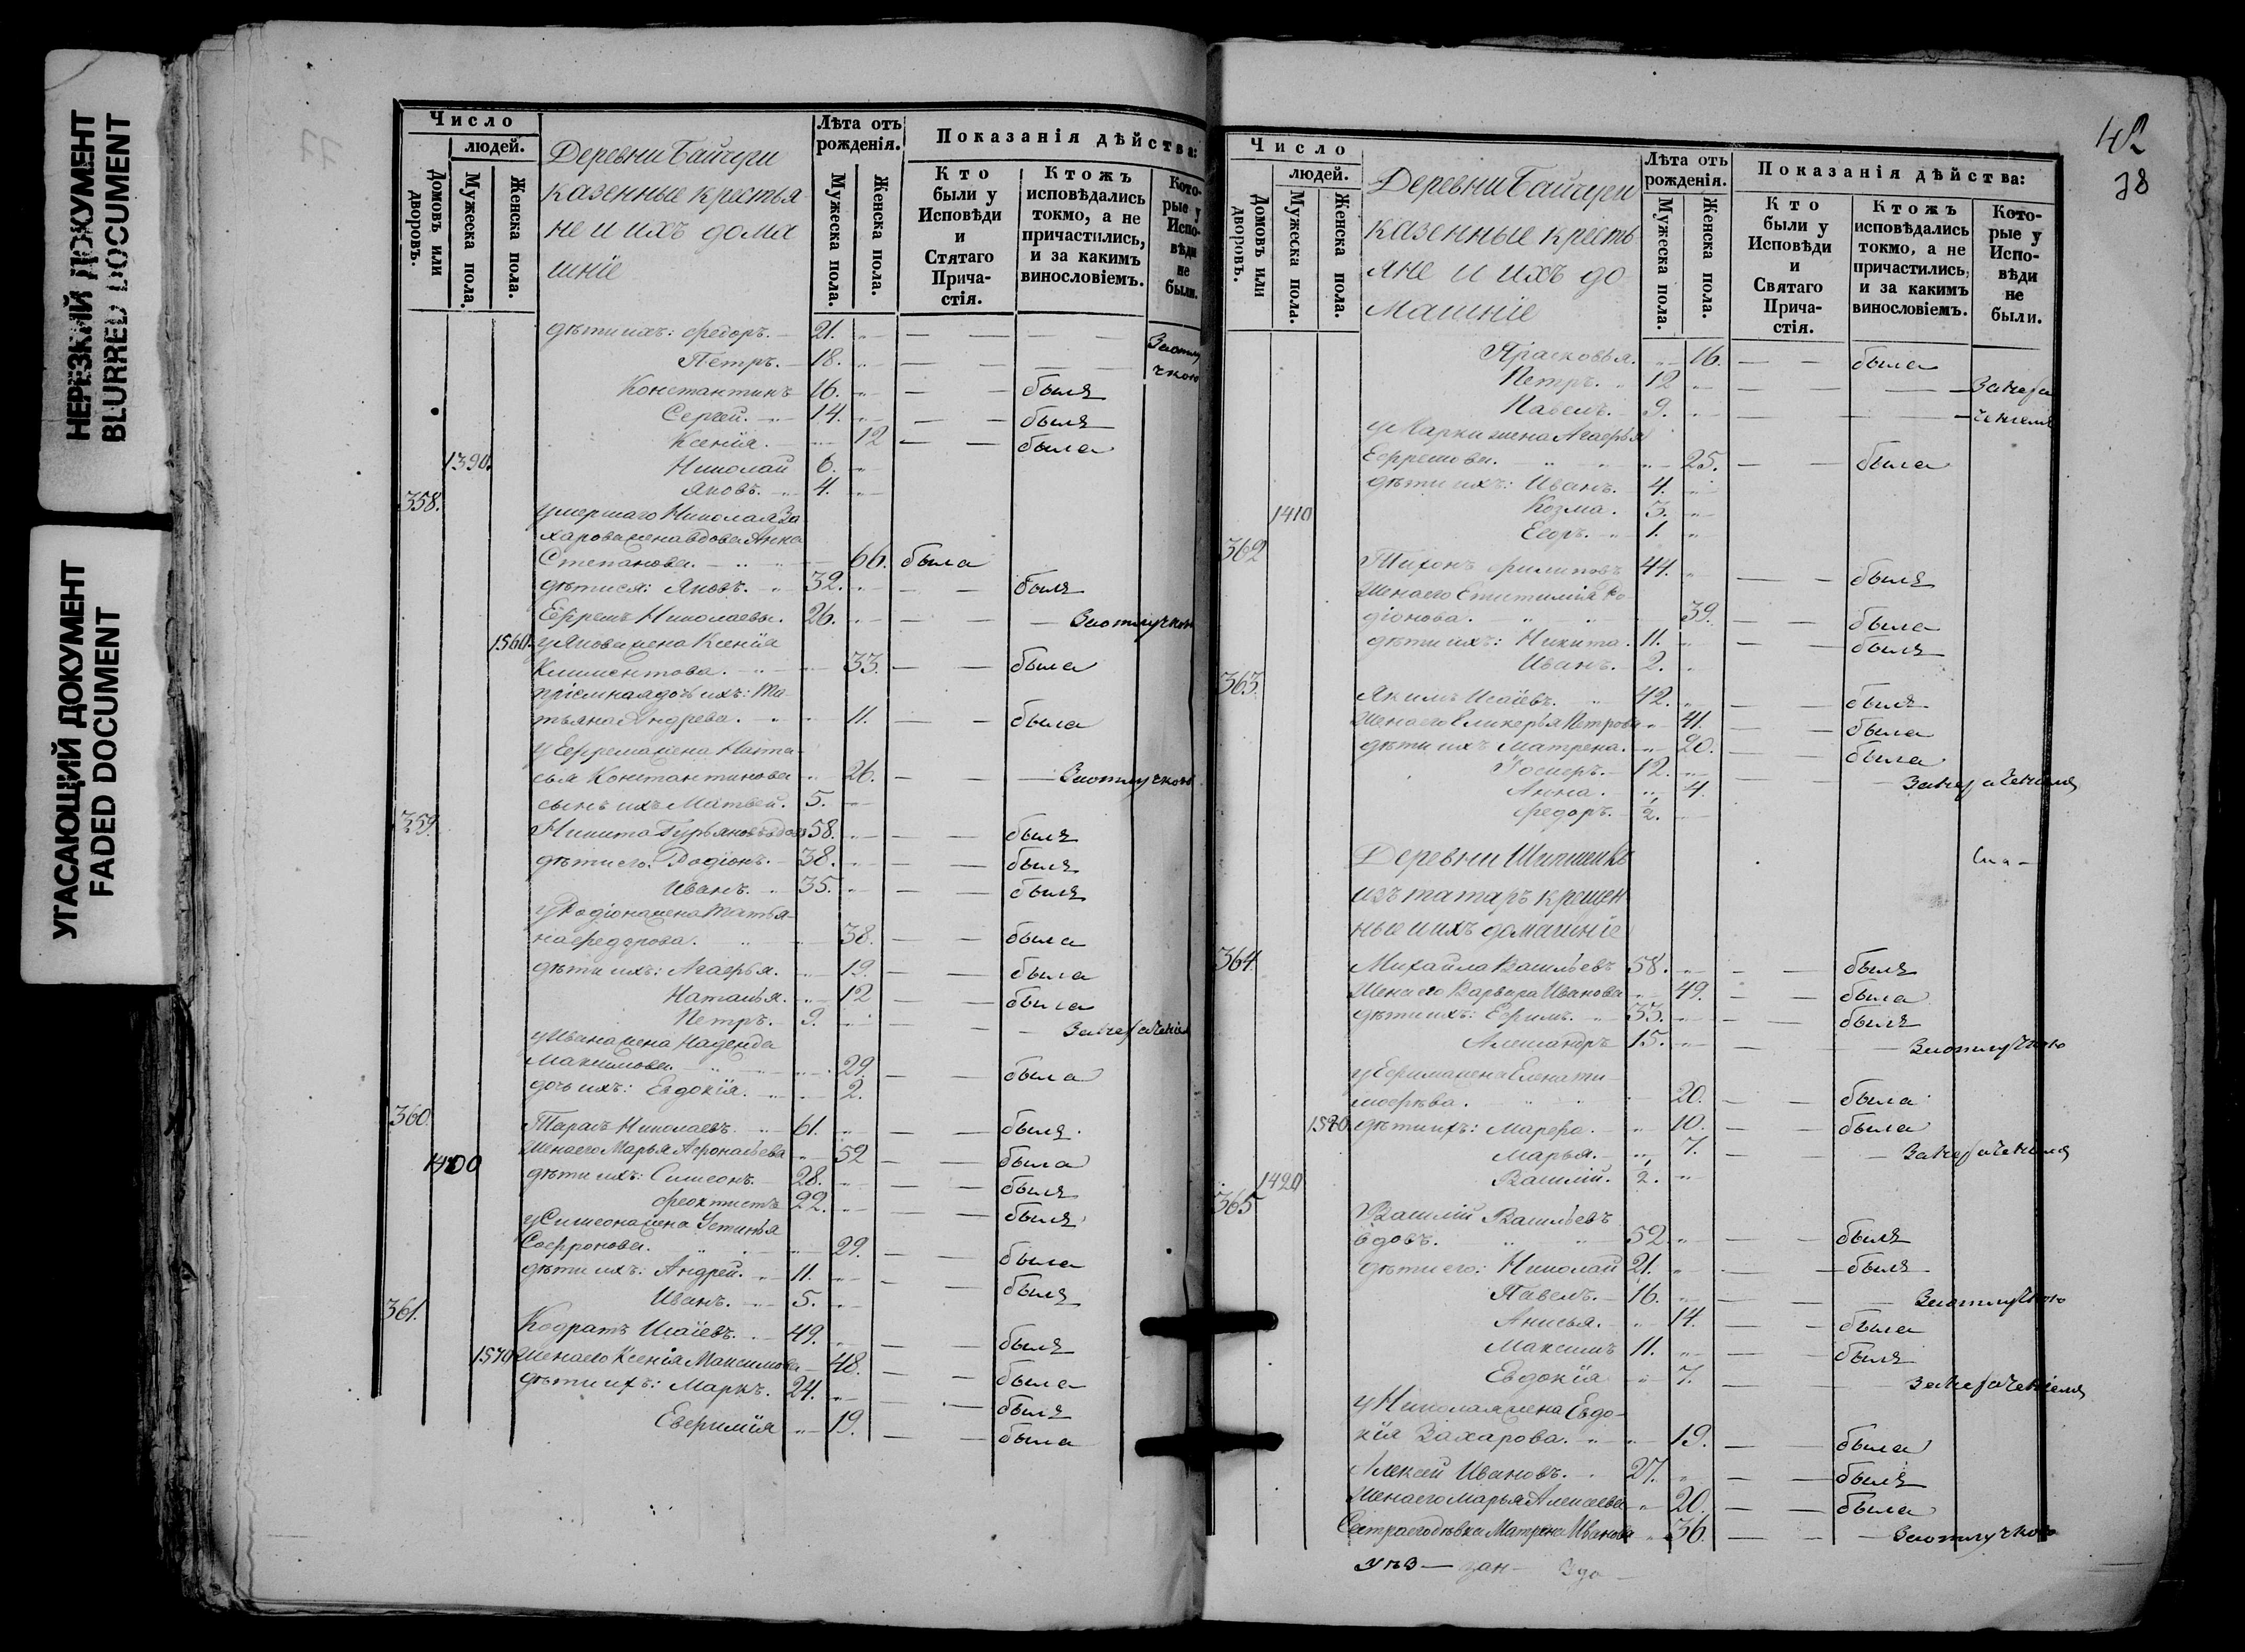 НЕРЕЗКИЙ ДОКУМЕНТ
BLURRED DOCUMENT
УГАСАЮЩИЙ ДОКУМЕНТ
FADED DOCUMENT
Число
людей.
Домовъ или дворовъ.
Мужеска пола.
Женска пола.
Деревни Байчуги
казенные крестья
не и ихъ дома
шніе
Лѣта отъ рожденія.
Мужеска пола.
Женска пола.
Показанія дѣйства:
Кто были у Исповѣди и Стятаго Прича-стія.
Ктожъ исповѣдались токмо, а не причастились, и за какимъ винословіемъ.
Кото-рые у Испо-вѣди не были.
дѣти ихъ: Федоръ. 21. Заотлу
Петръ. 18. чкою
Константинъ 16. былъ
Сергей. 14. былъ
Ксенія. 12 была
1390. Николай 6.
Яковъ. 4.
358. умершаго Николая За
харова жена вдова Анна
Степанова. 66. была
дѣти ся: Яковъ. 32. былъ
Ефремъ Николаевы. 26. Заотлучкою
1560. у Якова жена Ксенія
Климентова. 33. была
пріемная дочь ихъ: Та
тьяна Андрева. 11. была
у Ефрема жена Наста
сья Константинова 26. Заотлучкою
сынъ ихъ Матвей. 5.
359. Никита Гурьяновъ вдов 58. былъ
дѣти его: Родіонъ. 38. былъ
Иванъ. 35. былъ
у Родіона жена Татья
на Федорова. 38. была
дѣти ихъ: Агафья. 19. была
Наталья. 12 была
Петръ. 9. Занераченіем
у Ивана жена Надежда
Максимова. 29. была
дочь ихъ: Евдокія. 2.
360. Тарасъ Николаевъ. 61. былъ.
Жена его Марья Афонасьева 52 была
1400 дѣти ихъ: Симеонъ. 28. былъ
Феоктистъ 22. былъ
у Симеона жена Устинья
Софронова. 29. была
дѣти ихъ: Андрей. 11. былъ
Иванъ. 5.
361. Кодратъ Исаіевъ. 49. былъ
1570 Жена его Ксенія Максимова 48. была
дѣти ихъ: Маркъ. 24. былъ
Евфимія 19. была
42
38
Число
людей.
Домовъ или дворовъ.
Мужеска пола.
Женска пола.
Деревни Байчуги
казенные кресть
яне и ихъ до
машніе
Лѣта отъ рожденія.
Мужеска пола.
Женска пола.
Показанія дѣйства:
Кто были у Исповѣди и Святаго Прича-стія.
Ктожъ исповѣдались токмо, а не причастились, и за какимъ винословіемъ.
Кото-рые у Испо-вѣди не были.
Прасковья. 16. была
Петръ. 12 Занера
Павелъ. 9. ченіемъ
у Марки жена Агафья
Ефремова. 25. была
дѣти ихъ: Иванъ. 4.
1410 Козма. 3.
Егоръ. 1.
362 Тихонъ Филиповъ 44. былъ
Жена его Епитимія Ро
діонова. 39. была
дѣти ихъ: Никита. 11. былъ
Иванъ. 2.
363. Якимъ Исаіевъ. 42. былъ
Жена его Гликерья Петрова 41. была
дѣти ихъ Матрена. 20. была
12. Занераченіемъ
Анна. 4.
Федоръ. 1/2.
Деревни
изъ татаръ крещен
ные и ихъ домашніе
364. Михайла Васильевъ 58. былъ
Жена его Варвара Иванова 49. была
дѣти ихъ: Ефимъ. 33. былъ
Алешандръ 15. Заотлучкою
у Ефима жена Елена Ти
мофѣва. 20. была
1580. дѣти ихъ: Марфа. 10. была
Марья. 7. Занераченіемъ
1420 Василій. 1/2.
365 Василій Васильевъ
вдовъ. 52. былъ
дѣти его: Николай 21. былъ
Павелъ. 16. Заотлучкою
Анисья. 14. была
Максимъ 11. былъ
Евдокія 7. Занераченіемъ
у Николая жена Евдо
кія Захарова. 19. была
Алексѣй Ивановъ. 27. былъ
Жена его Марья Алексеева 20. была
Сестра его дѣвка Матрена Иванова 36. Заотлучкою